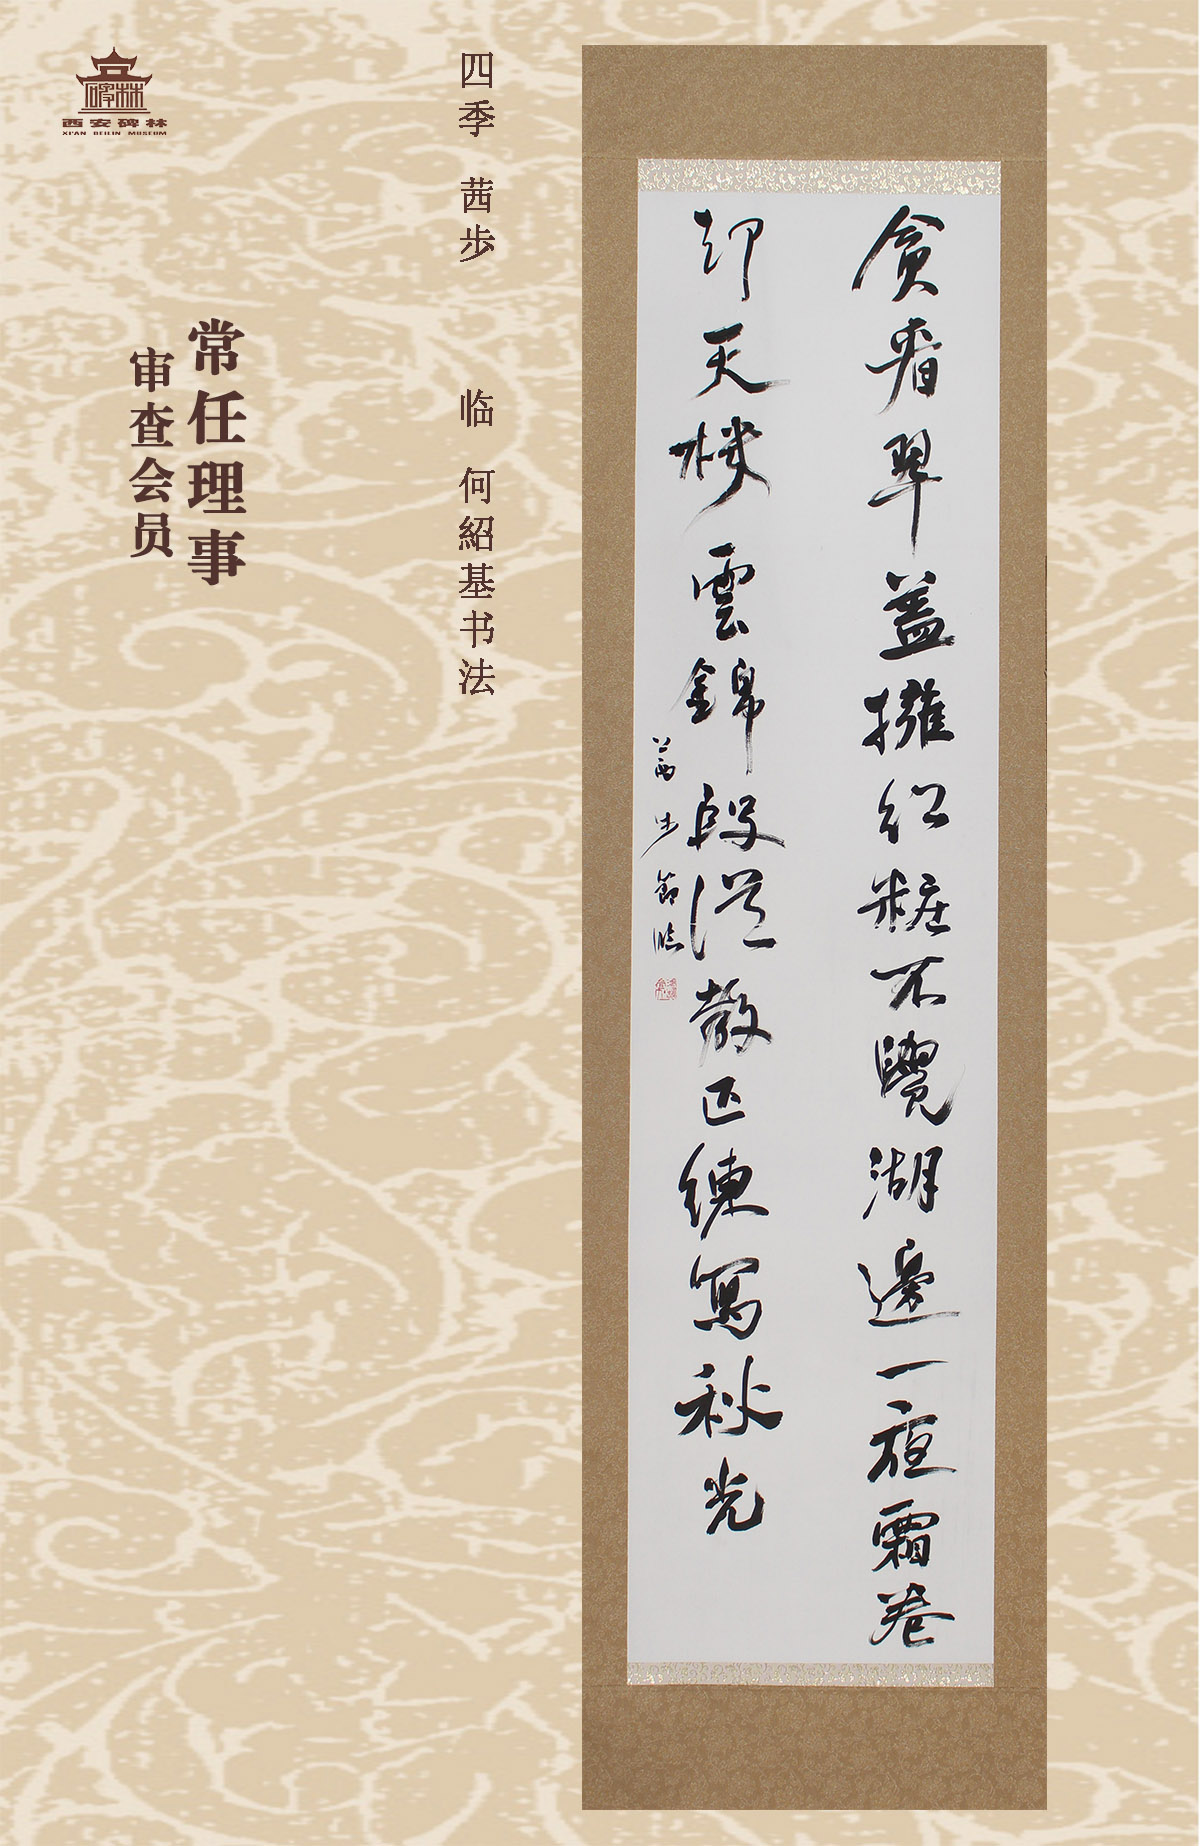 西安碑林
XI'AN BEILIN MUSEUM
貪看翠蓋擁紅粧不覺湖邊一夜霜卷
却天機雲錦段從教匹練寫秋光
茜步節臨
四季 茜步 临 何紹基书法
常任理事
审查会员